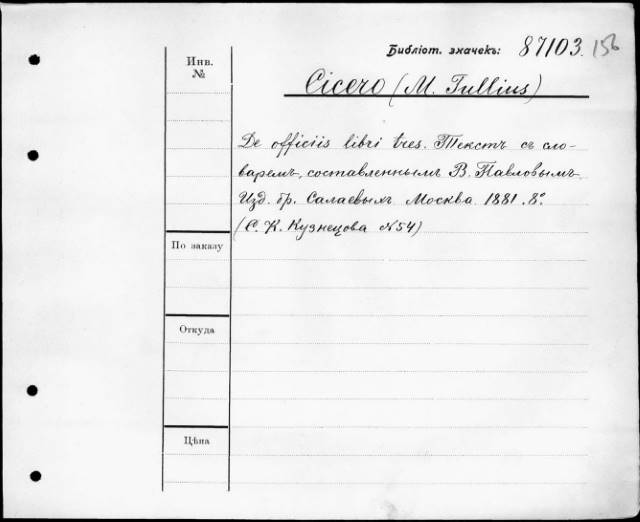 Библіот. значекъ: 87103. 156
Инв.
№
Cicero (M. Tullius)
De officiis libri tres. Текстъ съ сло-
варемъ, составленнымъ В. Павловымъ.
Изд. бр. Салаевыхъ. Москва. 1881. 8°.
(С. К. Кузнецова №54)
По заказу
Откуда
Цѣна